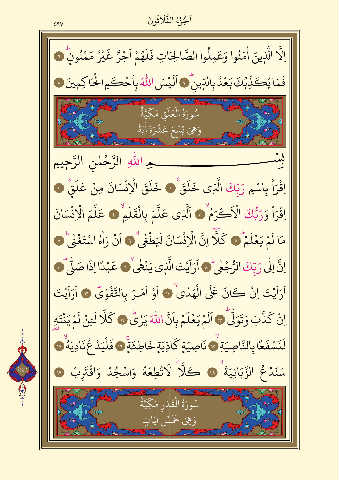 اَلْجُزْءُ الثَّلَاثُونَ
٥٩٧
اِلَّا الَّذِينَ اٰمَنُوا وَعَمِلُوا الصَّالِحَاتِ فَلَهُمْ اَجْرٌ غَيْرُ مَمْنُونٍ
فَمَا يُكَذِّبُكَ بَعْدُ بِالدِّينِ اَلَيْسَ اللّٰهُ بِاَحْكَمِ الْحَاكِمِينَ
سُورَةُ الْعَلَقِ مَكِّيَّةٌ
وَهِيَ تِسْعَ عَشْرَةَ اٰيَةً
بِسْمِ اللّٰهِ الرَّحْمٰنِ الرَّحِيمِ
اِقْرَأْ بِاسْمِ رَبِّكَ الَّذِى خَلَقَ خَلَقَ الْاِنْسَانَ مِنْ عَلَقٍ
اِقْرَأْ وَرَبُّكَ الْاَكْرَمُ اَلَّذِى عَلَّمَ بِالْقَلَمِ عَلَّمَ الْاِنْسَانَ
مَا لَمْ يَعْلَمْ كَلَّا اِنَّ الْاِنْسَانَ لَيَطْغٰى اَنْ رَاٰهُ اسْتَغْنٰى
اِنَّ اِلٰى رَبِّكَ الرُّجْعٰى اَرَاَيْتَ الَّذِى يَنْهٰى عَبْدًا اِذَا صَلّٰى
اَرَاَيْتَ اِنْ كَانَ عَلَى الْهُدٰى اَوْ اَمَرَ بِالتَّقْوٰى اَرَاَيْتَ
اِنْ كَذَّبَ وَتَوَلّٰى اَلَمْ يَعْلَمْ بِاَنَّ اللّٰهَ يَرٰى كَلَّا لَئِنْ لَمْ يَنْتَهِ
لَنَسْفَعًا بِالنَّاصِيَةِ نَاصِيَةٍ كَاذِبَةٍ خَاطِئَةٍ فَلْيَدْعُ نَادِيَهُ
سَنَدْعُ الزَّبَانِيَةَ كَلَّا لَا تُطِعْهُ وَاسْجُدْ وَاقْتَرِبْ
سُورَةُ الْقَدْرِ مَكِّيَّةٌ
وَهِيَ خَمْسُ اٰيَاتٍ